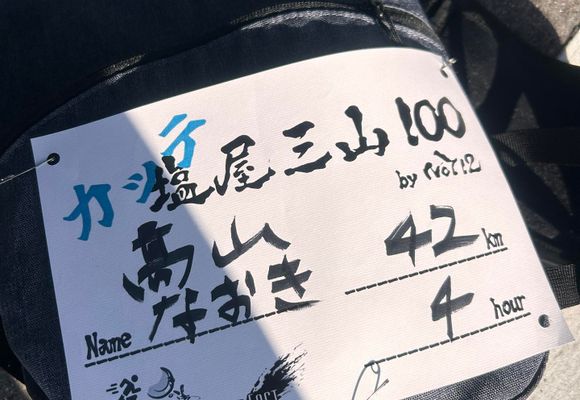 カッテ
塩屋三山100
高山
なおき
Name
42 km
4 hour